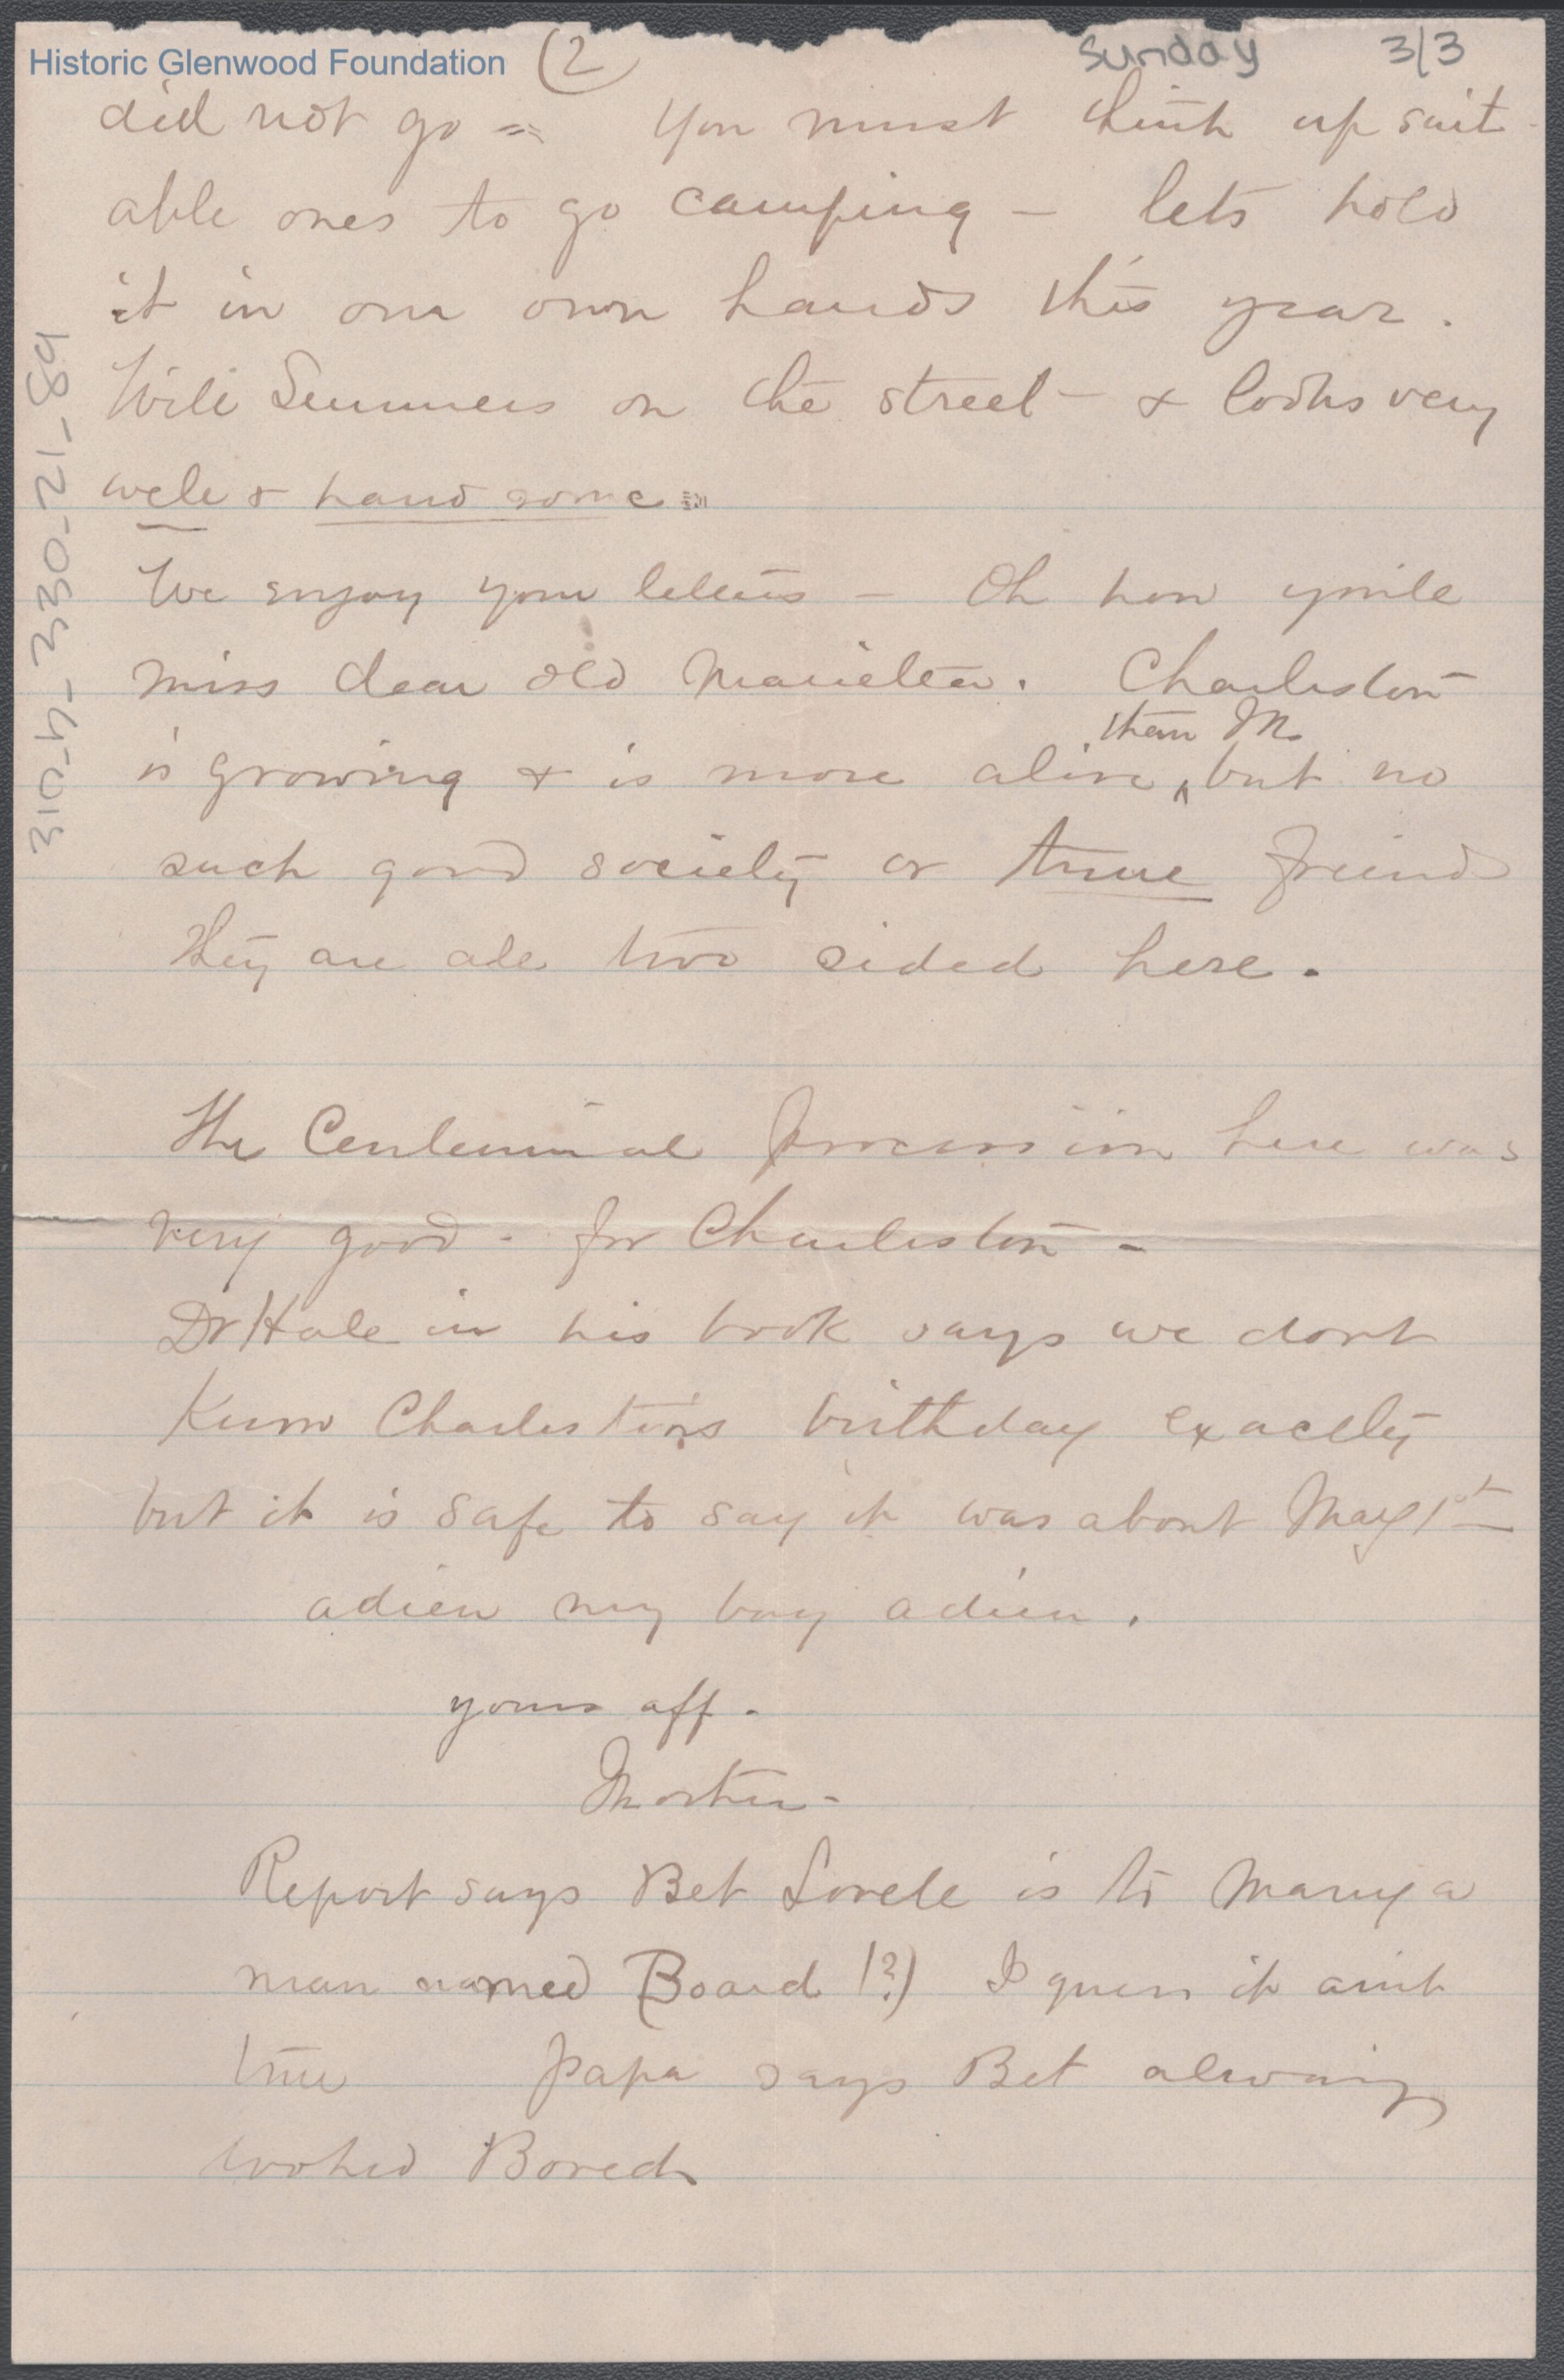 Historic Glenwood Foundation (2 Sunday 3/3
did not go = You must think up suit-
able ones to go camping - lets hold
it in our own hands this year.
Will Summers on the street - & looks very
well & handsome =
We enjoy your letters - Oh how you'll
miss dear old Marietta. Charleston
than M.
is growing & is more alive ^ but no
such good society or true friends
they are all two sided here.
The Centennial procession here was
very good - for Charleston -
Dr Hale in his book says we dont
Know Charlestons birthday exactly
but it is safe to say it was about May 1st
adieu my boy adieu.
yours aff.
Mother -
Report says Bet Lovell is to marry a
man named (Board !?) I guess it aint
true Papa says Bet always
looked Bored
310-4-330-21-89